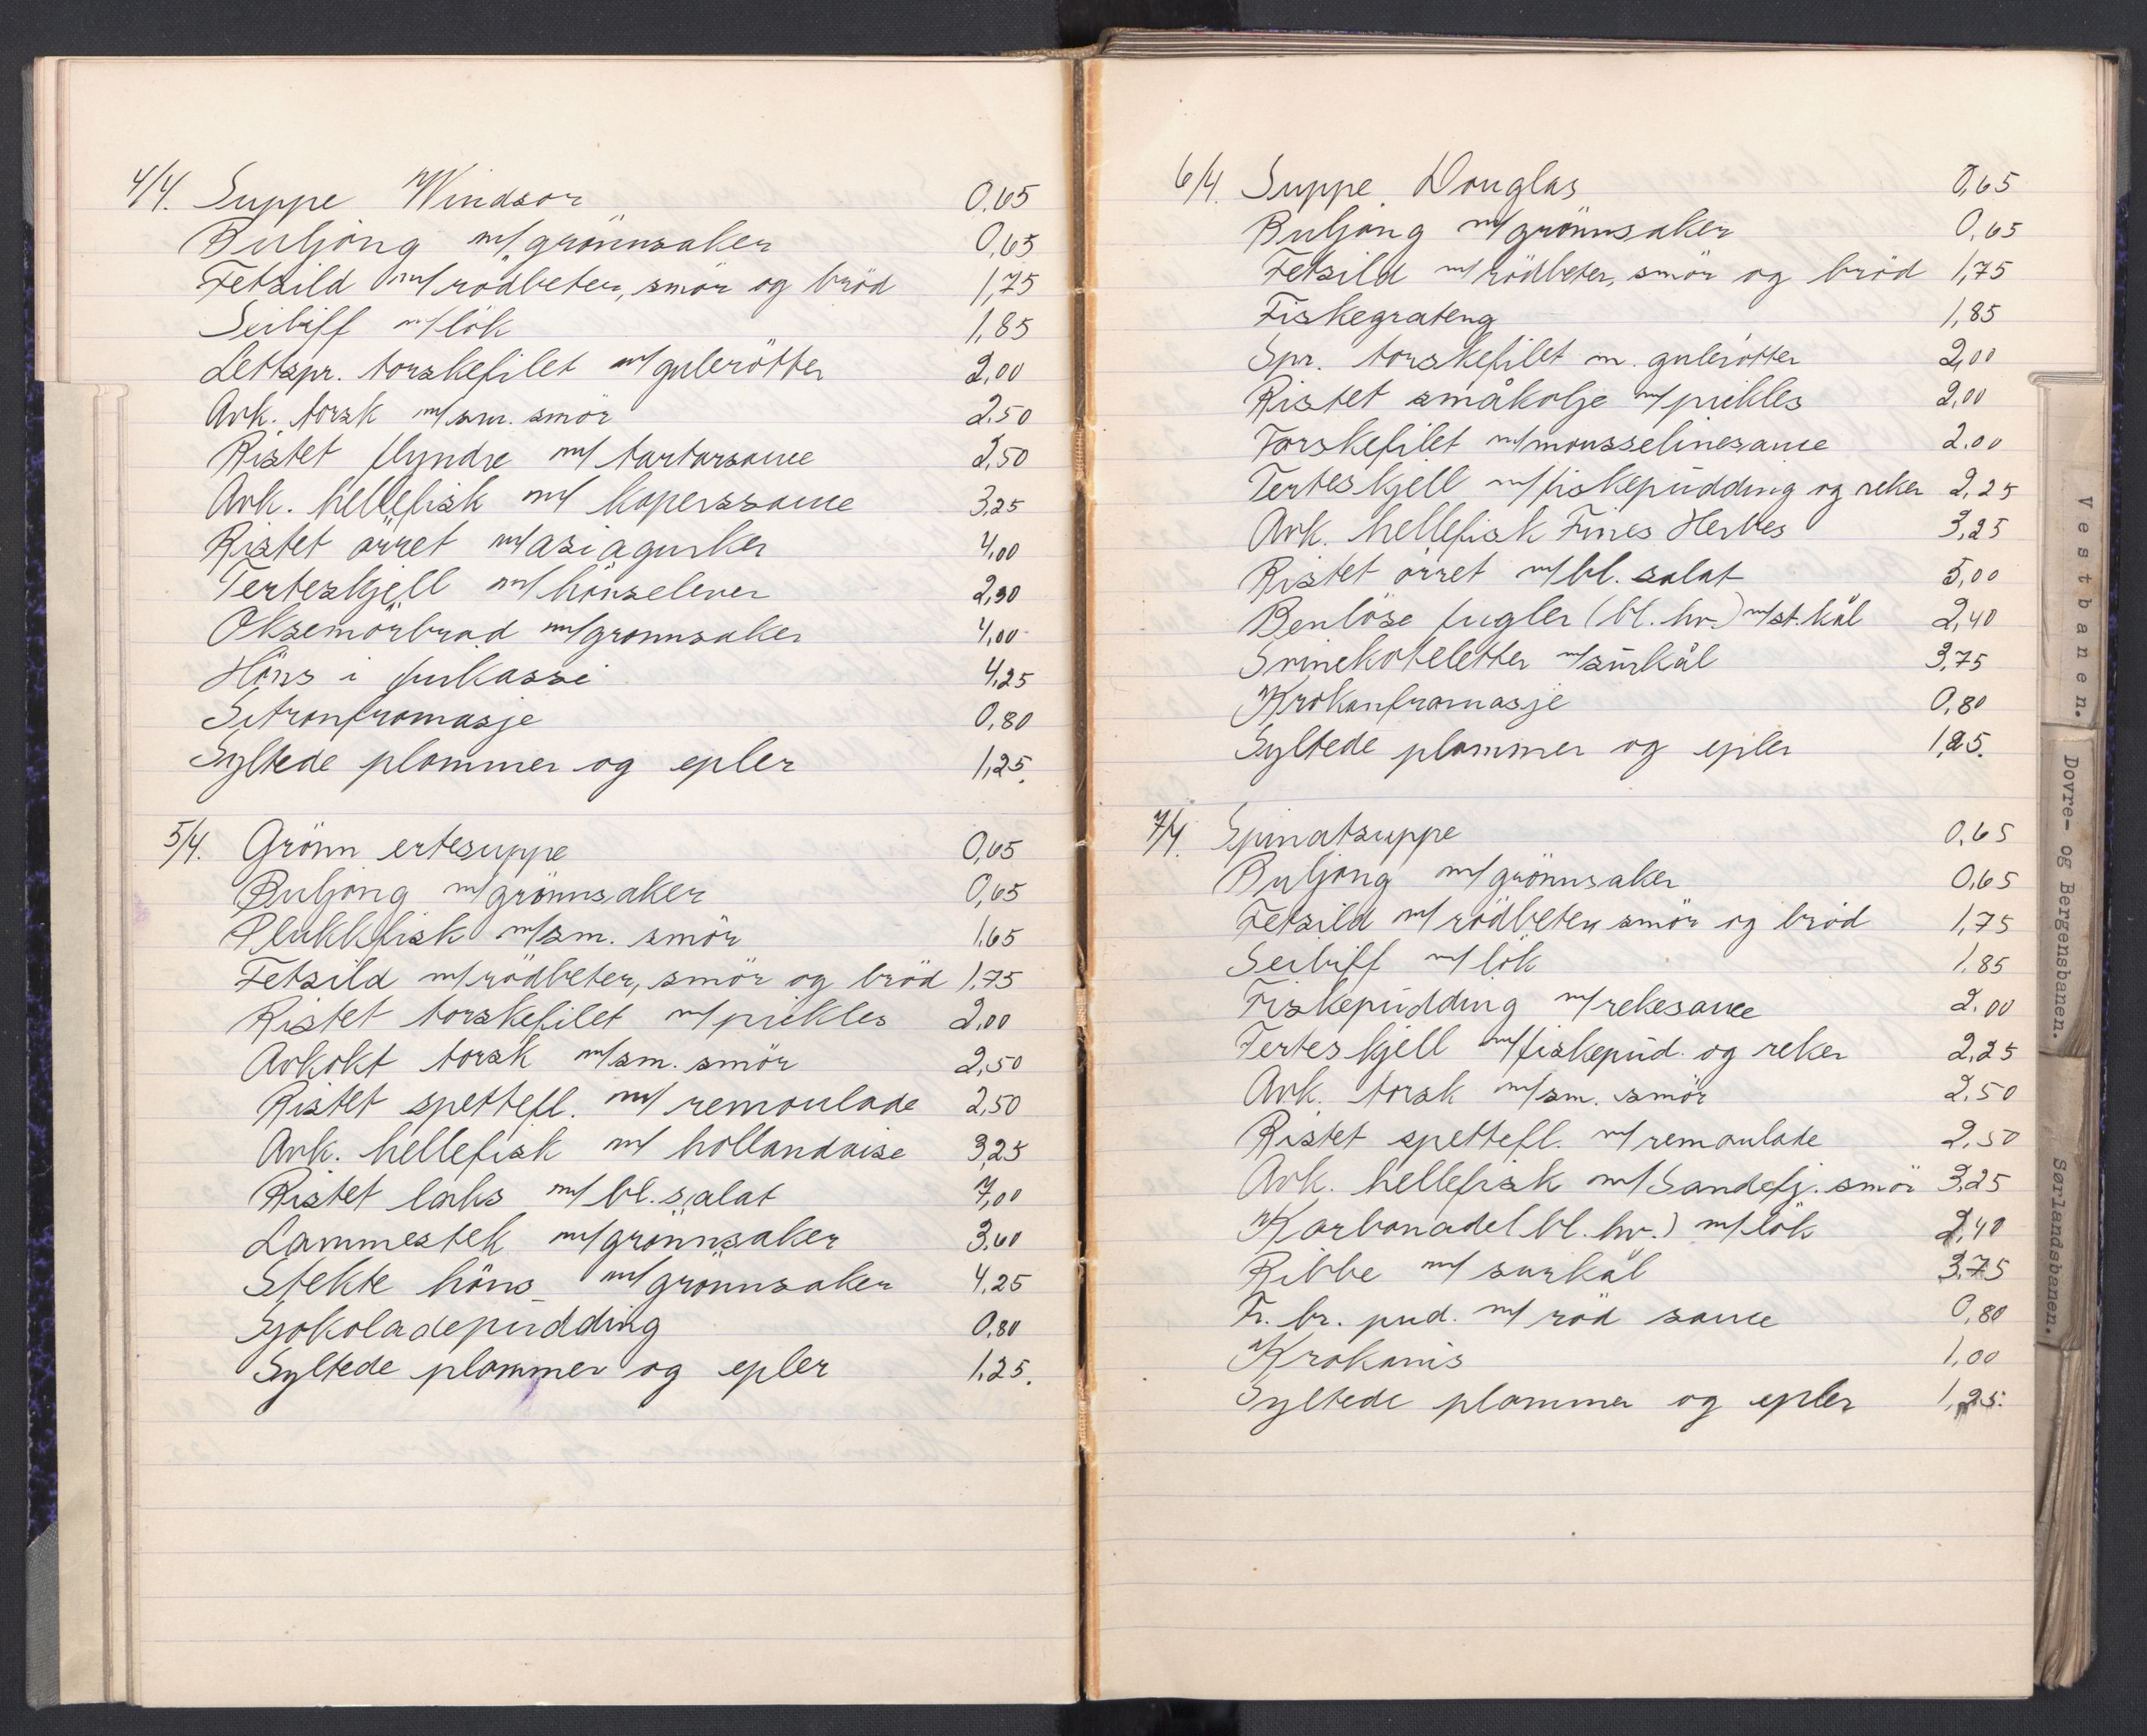 4/4. Suppe Windsor 0,65
Buljong m/grönnsaker 0,65
Fetsild m/rödbeter, smör og bröd 1,75
Seibiff m/lök 1,85
Lettspr. torskefilet m/gulerötter 2,00
Avk. torsk m/sm. smör 2,50
Ristet flyndre m/ tartarsauce 2,50
Avk. hellefisk m/ kaperssauce 3,25
Ristet örret m/asiagurker 4,00
Terteskjell m/hönselever 2,30
Oksemörbrad m/grönnsaker 4,00
Höns i furkassi 4,25
Sitronfromasje 0,80
Syltede plommer og epler 1,25.
5/4. Grönn ertesuppe 0,65
Buljong m/grönnsaker 0,65
Plukkfisk m/sm. smör 1,65
Fetsild m/rödbeter, smör og bröd 1,75
Ristet torskefilet m/pickles 2,00
Avkokt torsk m/sm. smör 2,50
Ristet spettefl. m/ remoulade 2,50
Avk. hellefisk m/ hollandaise 3,25
Ristet laks m/ bl. salat 7,00
Lammestek m/grönnsaker 3,60
Stekte höns m/grönnsaker 4,25
Sjokoladepudding 0,80
Syltede plommer og epler 1,25.
6/4. Suppe Douglas 0,65
Buljong m/grönnsaker 0,65
Fetsild m/rödbeter, smör og bröd 1,75
Fiskegrateng 1,85
Spr. torskefilet m. gulerötter 2,00
Ristet småkolje m/pickles 2,00
Torskefilet m/mousselinesauce 2.00
Terteskjell m/fiskepudding og reker 2,25
Avk. hellefisk Fines Herbes 3,25
Ristet örret m/bl. salat 5,00
Benlöse fugler (bl. hv.) m/st. kål 2,40
Svinekoteletter m/surkål 3,75
Krokanfromasje 0,80
Syltede plommer og epler 1,25.
7/4. Spinatsuppe 0,65
Buljong m/grönnsaker 0,65
Fetsild m/rödbeter smör og bröd 1,75
Seibiff m/lök 1.85
Fiskepudding m/rekesauce 2.00
Terteskjell m/fiskepud. og reker 2,25
Avk. torsk m/sm. smör 2.50
Ristet spettefl. m/remoulade 2,50
Avk. hellefisk m/Sandefj. smör 3,25
Karbonade(bl. hv.) m/lök 2,40
Ribbe m/ surkål 3.75
Fr. br. pud. m/ röd sauce 0,80
Krokanis 1,00
Syltede plommer og epler 1,25.
Vestbanen.
Dovre- og Bergensbanen.
Sørlandsbanen.